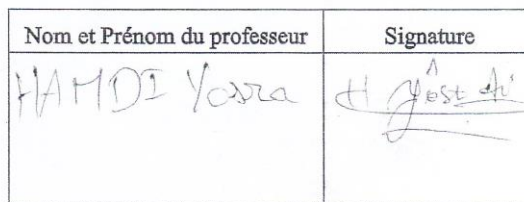 Nom et Prénom du professeur
Signature
HAMDI Yosra